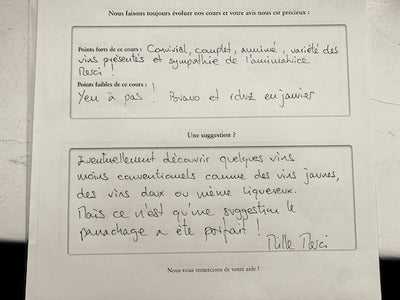 Nous faisons toujours évoluer nos cours et votre avis nous est précieux :
Points forts de ce cours : Convivial, complet, animé, variété des
vins présentés et sympathie de l'animatrice
Merci !
Points faibles de ce cours :
Y en a pas ! Bravo et rdvz en janvier
Une suggestion ?
Eventuellement découvrir quelques vins
moins conventionnels comme des vins jaunes,
des vins doux ou même liquoreux.
Mais ce n'est qu'une suggestion le
panachage a été parfait !
Mille Merci
Nous vous remercions de votre aide !